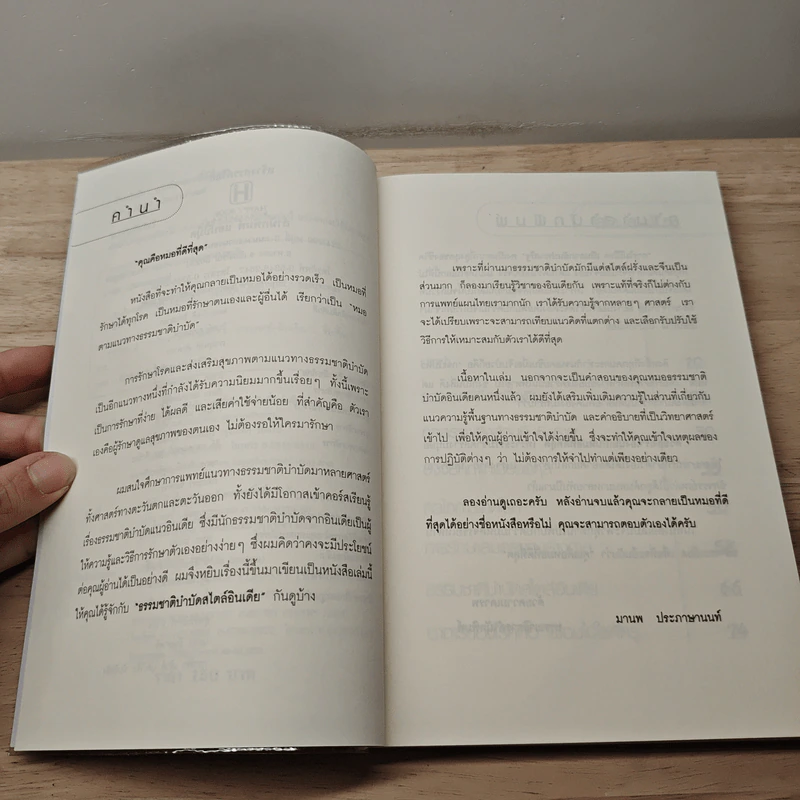 คำนำ
"คุณคือหมอที่ดีที่สุด"
หนังสือที่จะทำให้คุณกลายเป็นหมอได้อย่างรวดเร็ว เป็นหมอที่
รักษาได้ทุกโรค เป็นหมอที่รักษาตนเองและผู้อื่นได้ เรียกว่าเป็น "หมอ
ตามแนวทางธรรมชาติบำบัด"
การรักษาโรคและส่งเสริมสุขภาพตามแนวทางธรรมชาติบำบัด
เป็นอีกแนวทางหนึ่งที่กำลังได้รับความนิยมมากขึ้นเรื่อยๆ ทั้งนี้เพราะ
เป็นการรักษาที่ง่าย ได้ผลดี และเสียค่าใช้จ่ายน้อย ที่สำคัญคือ ตัวเรา
เองคือผู้รักษาดูแลสุขภาพของตนเอง ไม่ต้องรอให้ใครมารักษา
ผมสนใจศึกษาการแพทย์แนวทางธรรมชาติบำบัดมาหลายศาสตร์
ทั้งศาสตร์ทางตะวันตกและตะวันออก ทั้งยังได้มีโอกาสเข้าคอร์สเรียนรู้
เรื่องธรรมชาติบำบัดแนวอินเดีย ซึ่งมีนักธรรมชาติบำบัดจากอินเดียเป็นผู้
ให้ความรู้และวิธีการรักษาตัวเองอย่างง่ายๆ ซึ่งผมคิดว่าคงจะมีประโยชน์
ต่อคุณผู้อ่านได้เป็นอย่างดี ผมจึงหยิบเรื่องนี้ขึ้นมาเขียนเป็นหนังสือเล่มนี้
ให้คุณได้รู้จักกับ "ธรรมชาติบำบัดสไตล์อินเดีย" กันดูบ้าง
เพราะที่ผ่านมาธรรมชาติบำบัดมักมีแต่สไตล์ฝรั่งและจีนเป็น
ส่วนมาก ก็ลองมาเรียนรู้วิชาของอินเดียกัน เพราะแท้ที่จริงก็ไม่ต่างกับ
การแพทย์แผนไทยเรามากนัก เราได้รับความรู้จากหลายๆ ศาสตร์ เรา
จะได้เปรียบเพราะจะสามารถเทียบแนวคิดที่แตกต่าง และเลือกรับปรับใช้
วิธีการให้เหมาะสมกับตัวเราได้ดีที่สุด
เนื้อหาในเล่ม นอกจากจะเป็นคำสอนของคุณหมอธรรมชาติ
บำบัดอินเดียคนหนึ่งแล้ว ผมยังได้เสริมเพิ่มเติมความรู้ในส่วนที่เกี่ยวกับ
แนวความรู้พื้นฐานทางธรรมชาติบำบัด และคำอธิบายที่เป็นวิทยาศาสตร์
เข้าไป เพื่อให้คุณผู้อ่านเข้าใจได้ง่ายขึ้น ซึ่งจะทำให้คุณเข้าใจเหตุผลของ
การปฏิบัติต่างๆ ว่า ไม่ต้องการให้จำไปทำแต่เพียงอย่างเดียว
ลองอ่านดูเถอะครับ หลังอ่านจบแล้วคุณจะกลายเป็นหมอที่ดี
ที่สุดได้อย่างชื่อหนังสือหรือไม่ คุณจะสามารถตอบตัวเองได้ครับ
มานพ ประภาษานนท์